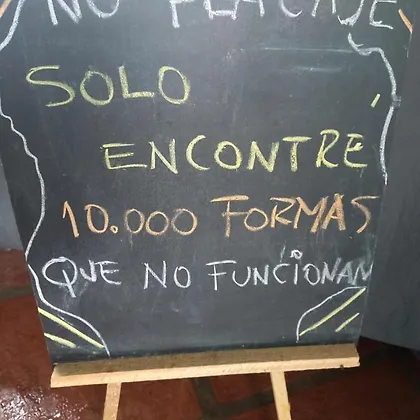 NO
SOLO
ENCONTRÉ
10.000 FORMAS
QUE NO FUNCIONAN